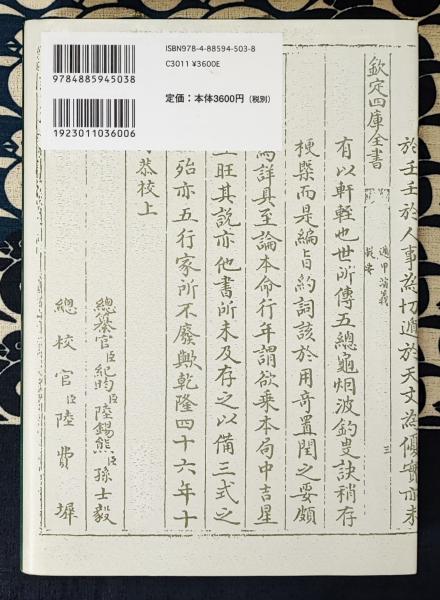 ISBN978-4-88594-503-8
C3011 ¥3600E
定価：本体3600円（税別）
9784885945038
1923011036006
欽定四庫全書
遁甲演義
提要
三
於壬壬於人事為切遁於天文為優實亦未
有以軒輊也世所傳五總龜烟波釣叟訣稍存
梗槩而是編旨約詞該於用竒置閏之妥頗
為詳具至論本命行年謂欲乗本局中吉星
旺其說亦他書所未及存之以備三式之
殆亦五行家所不廢歟乾隆四十六年十
恭校上
總纂官臣紀昀臣陸錫熊臣孫士毅
總校官臣陸費墀